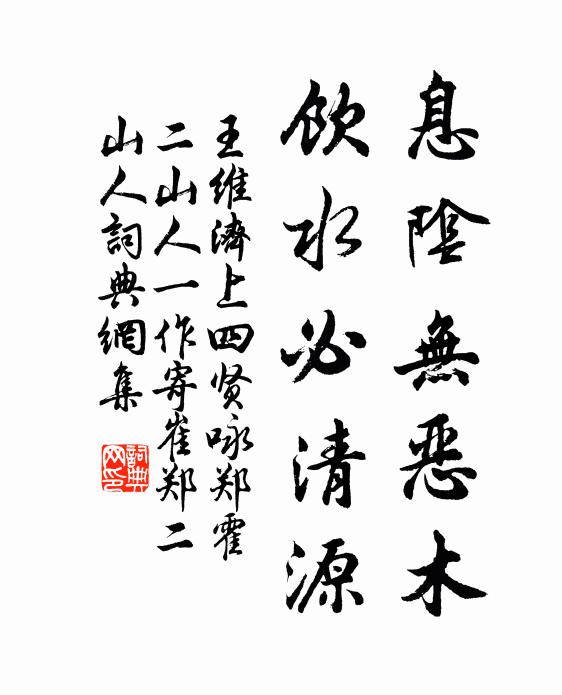 息陰無惡木
飲水必清源
王維濟上四贤咏郑霍
二山人一作寄崔郑二
山人詞典網集
詞典
网印